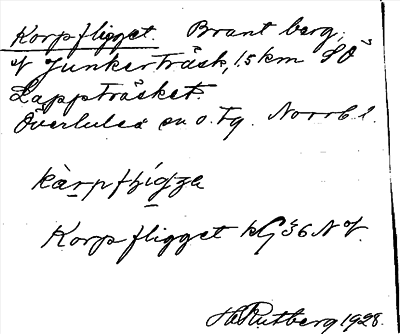 Korpfligget. Brant berg,
vf Junkerträsk, 1,5 km SO
Lappträsket.
Överluleå sn o. tg. Norrb. l.
kàrpflígge
Korpfligget kG 36 N vf.
H Rutberg 1928.